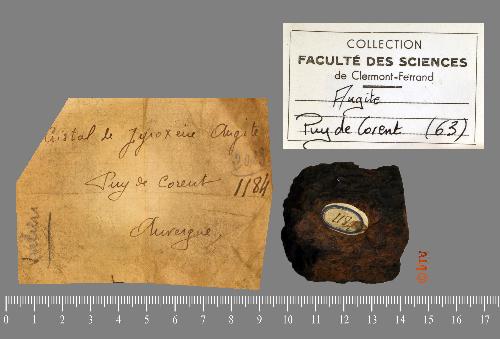 Cristal de pyroxène Augite
Puy de Corent
1184
Auvergne,
COLLECTION
FACULTÉ DES SCIENCES
de Clermont-Ferrand
Augite
Puy de Corent (63)
1184
0 1 2 3 4 5 6 7 8 9 10 11 12 13 14 15 16 17